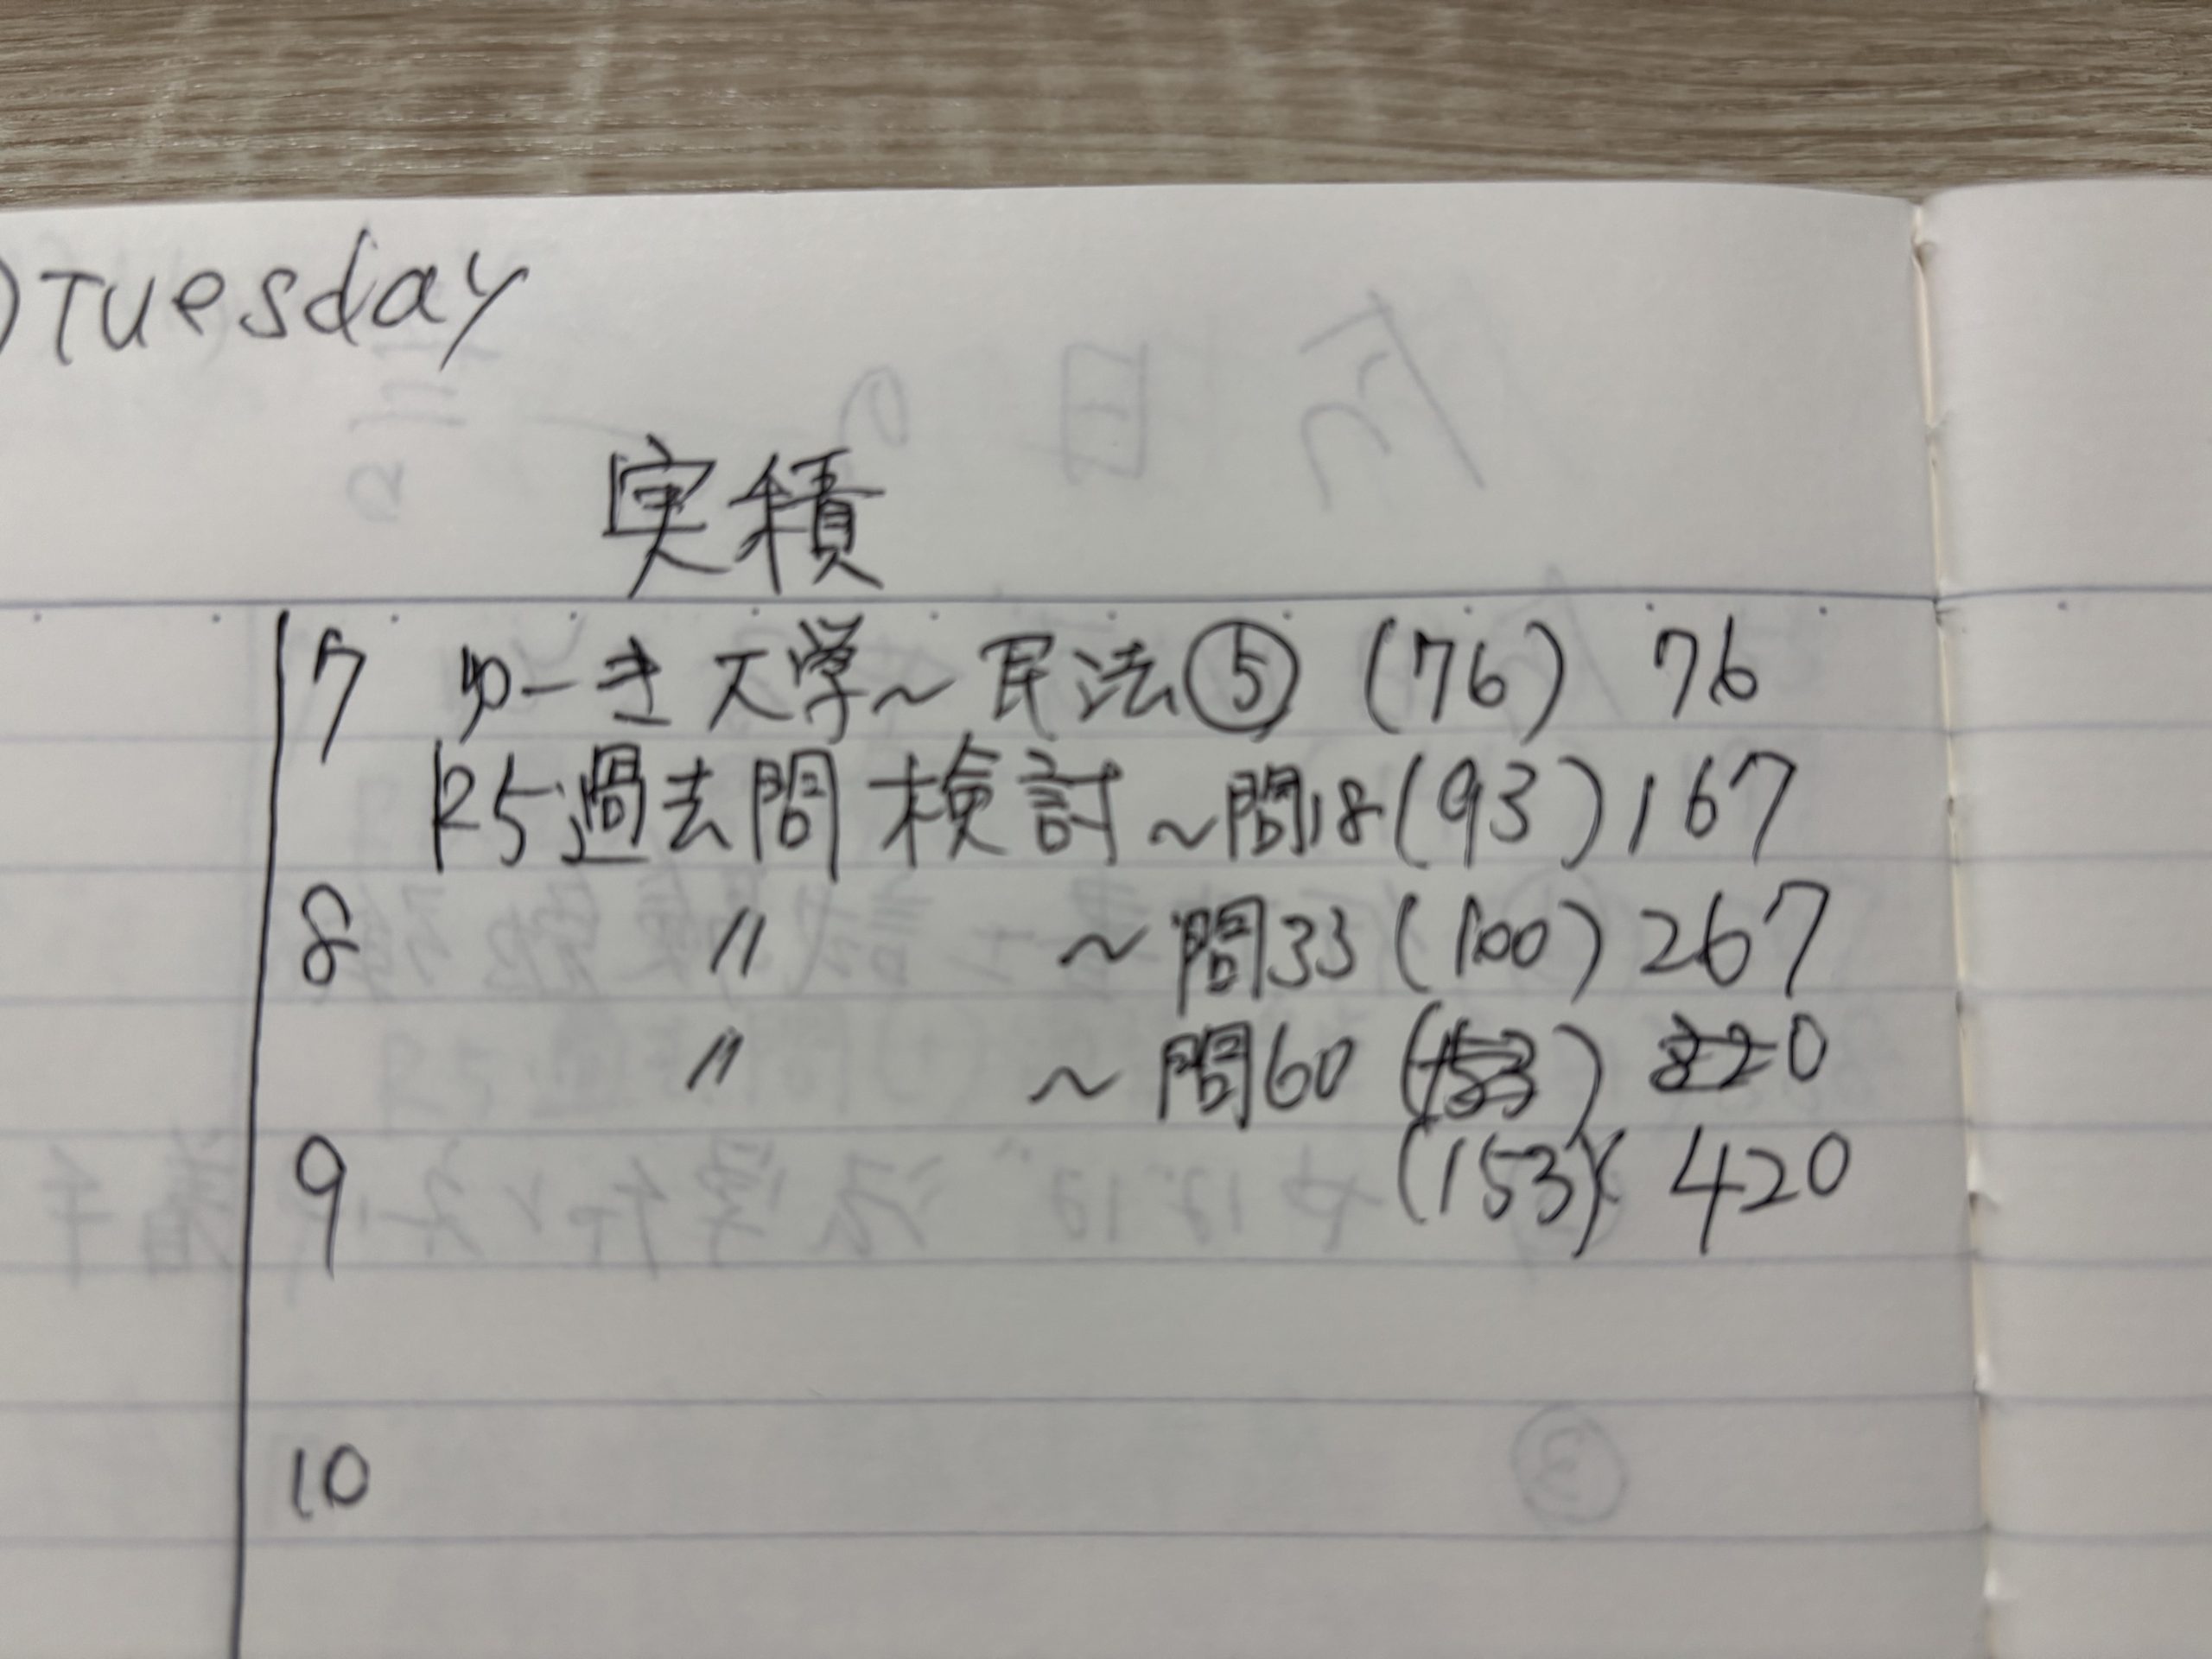 )Tuesday
実積
7 ゆーき大学~民法⑤ (76) 76
R5過去問検討~問18(93) 167
8 〃 ~問33(100) 267
〃 ~問60
9 (153) 420
10